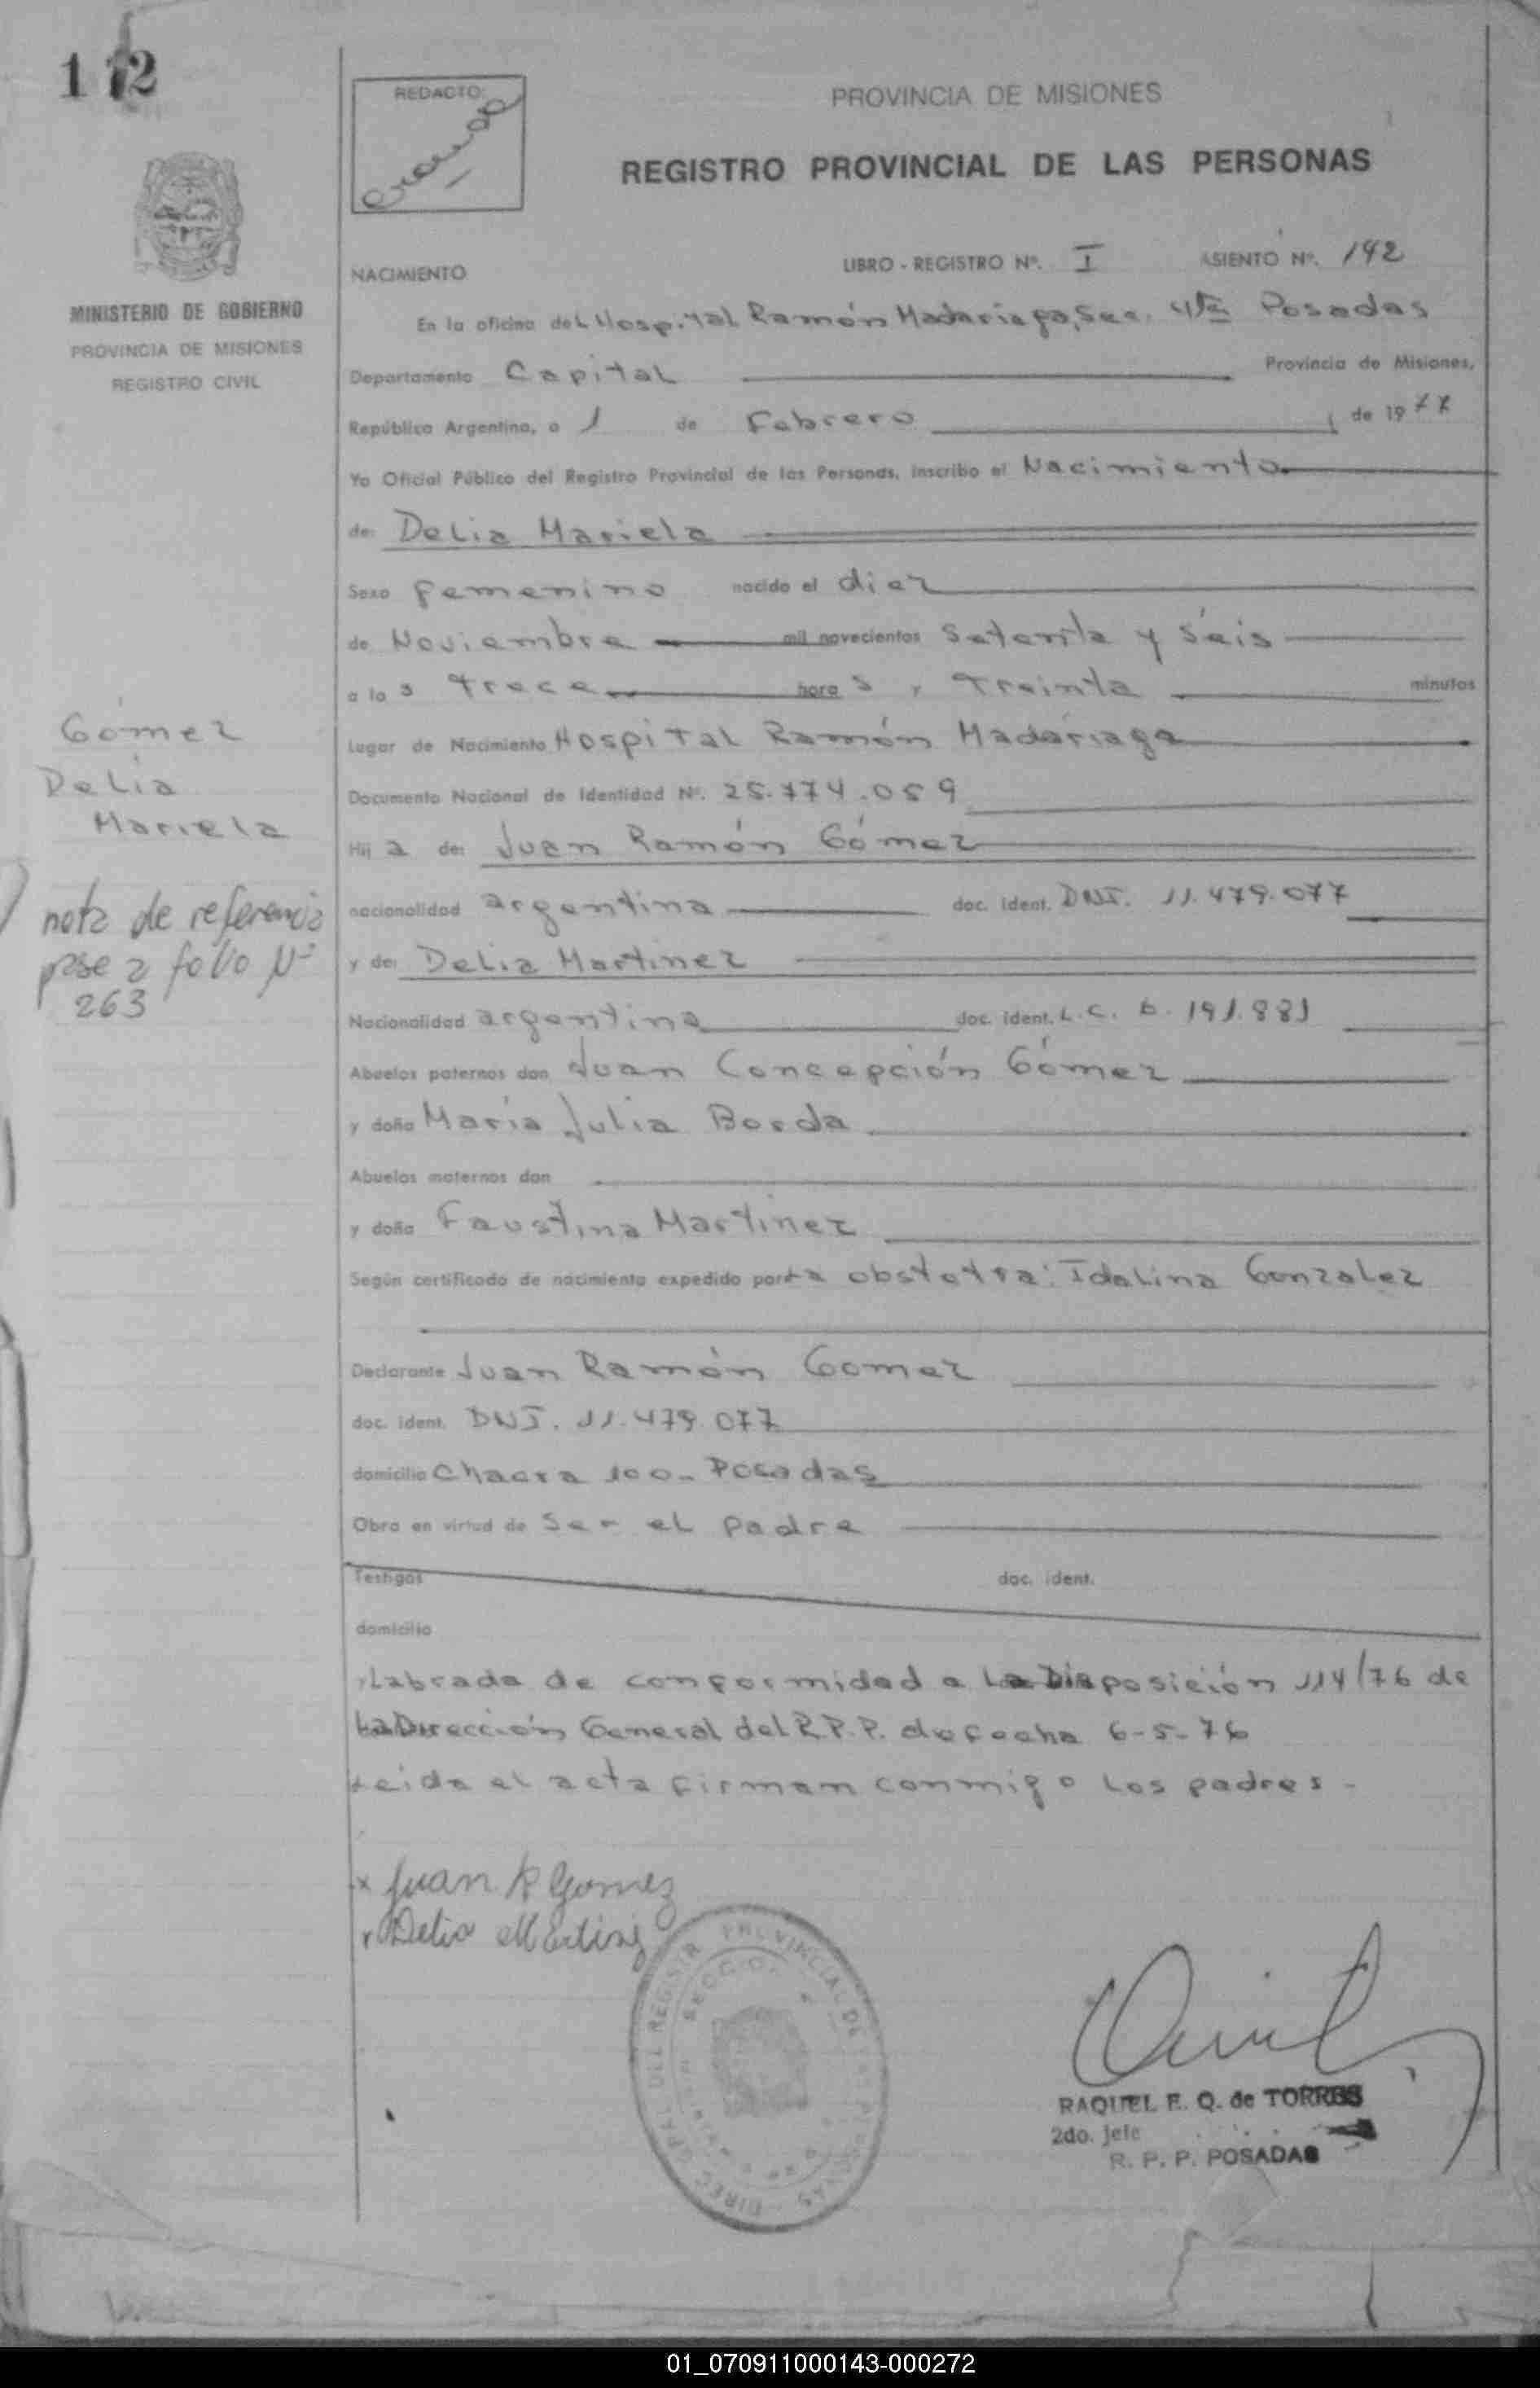 112
REDACTO:
PROVINCIA DE MISIONES
REGISTRO PROVINCIAL DE LAS PERSONAS
MINISTERIO DE GOBIERNO
PROVINCIA DE MISIONES
REGISTRO CIVIL
NACIMIENTO
LIBRO - REGISTRO Nº. I ASIENTO Nº. 142
En la oficina del Hospital Ramón Madariaga, Sec. 4ta Posadas
Departamento Capital Provincia de Misiones,
República Argentina, a 1 de Febrero de 1977
Yo Oficial Público del Registro Provincial de las Personas, inscribo el Nacimiento
de: Delia Mariela
Sexo femenino nacido el diez
de Noviembre mil novecientos Setenta y Séis
a las Trece horas y Treinta minutos
Lugar de Nacimiento Hospital Ramón Madariaga
Documento Nacional de Identidad Nº. 25.774.059
Hija de: Juan Ramón Gómez
nacionalidad argentina doc. ident. DNI. 11.479.077
y de: Delia Martinez
Nacionalidad argentina doc. ident. L.C. 6.191.881
Abuelos paternos don Juan Concepción Gómez
y doña María Julia Borda
Abuelos maternos don
y doña Faustina Martinez
Según certificado de nacimiento expedido por la obstetra: Idalina Gonzalez
Declarante Juan Ramón Gomez
doc. ident. DNI. 11.479.077
domicilio Chacra 100- Posadas
Obra en virtud de Ser el padre
Testigos doc. ident.
domicilio
Labrada de conformidad a la Disposición 114/76 de
la Dirección General del R.P.P. de fecha 6-5-76
Leida el acta firman conmigo los padres -
Gómez
Delia
Mariela
nota de referencia
pase a folio Nº
263
x Juan R Gomez
x Delia Martinez
DIREC GRAL DEL REGISTR PROVINCIAL DE LAS PERSONAS
SECCIO
RAQUEL E. Q. de TORRES
2do. Jefe
R. P. P. POSADAS
01_070911000143-000272